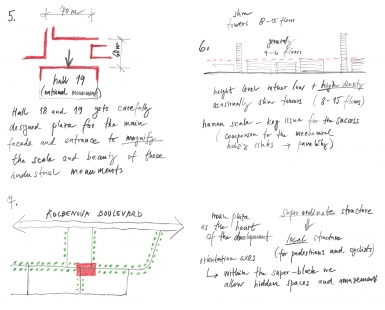 5.
70 m
60 m
hall 19
(national monument)
Hall 18 and 19 gets carefully
designed plaza for the main
facade and entrance to magnify
the scale and beauty of these
industrial monuments
slim
towers 8-15 floors
6.
generally
4-6 floors
height level rather low + higher density
occasionally slim towers (8-15 floors)
human scale - key issue for the success
(comparison for the mechanical
housing
7.
ROLBENOVA BOULEVARD
main plaza
as the heart
of the development
orientation axes
superordinate structure
local structure
(for pedestrians and cyclists)
within the super-blocks we
allow hidden spaces and amazement